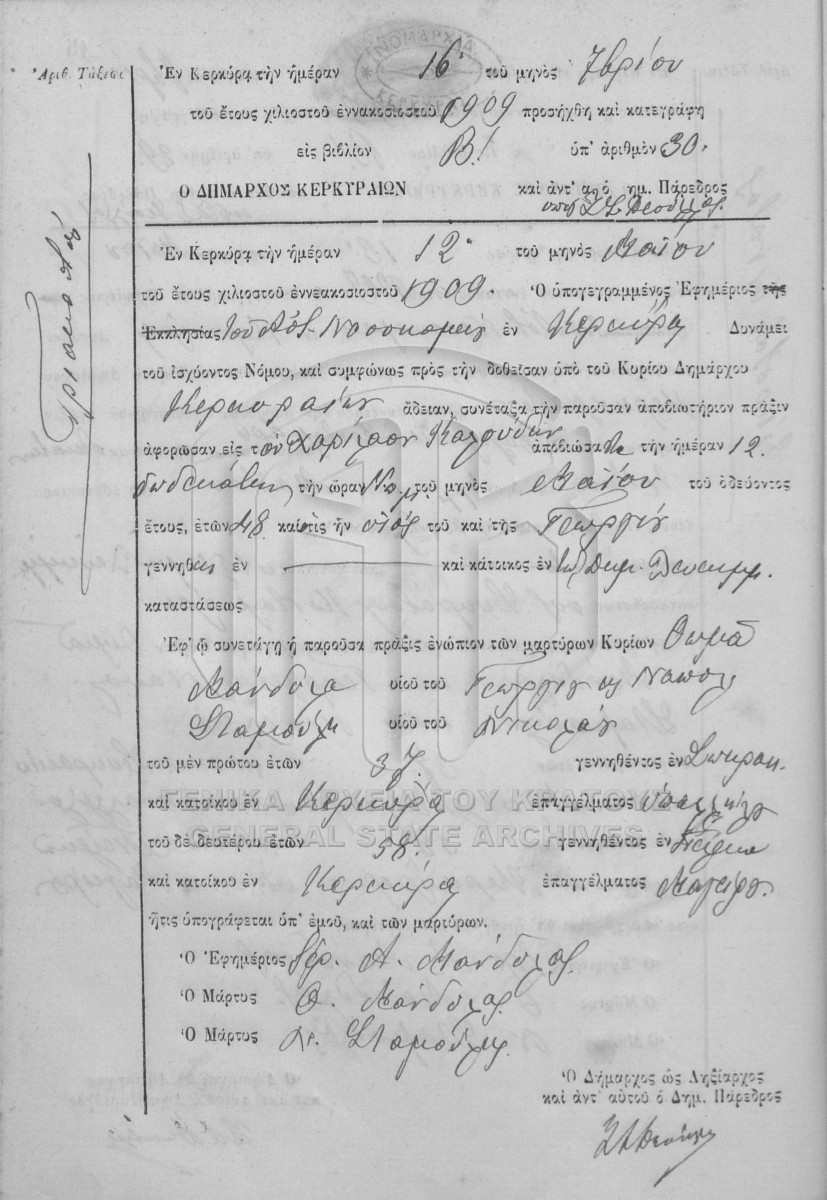 Ἀριθ. Τάξεως
Ἐν Κερκύρᾳ τὴν ἡμέραν 16 τοῦ μηνὸς 7βρίου
τοῦ ἔτους χιλιοστοῦ ἐννακοσιοστοῦ 1909 προσήχθη καὶ κατεγράφη
εἰς βιβλίον Β! ὑπ' ἀριθμὸν 30.
Ο ΔΗΜΑΡΧΟΣ ΚΕΡΚΥΡΑΙΩΝ καὶ ἀντ' αὐ ὁ δημ. Πάρεδρος
Ἐν Κερκύρᾳ τὴν ἡμέραν 12 τοῦ μηνὸς Μαΐου
τοῦ ἔτους χιλιοστοῦ ἐννεακοσιοστοῦ 1909. Ὁ ὑπογεγραμμένος Ἐφημέριος τῆς
Ἐκκλησίας τοῦ Νοσοκομείου ἐν Κερκύρᾳ Δυνάμει
τοῦ ἰσχύοντος Νόμου, καὶ συμφώνως πρὸς τὴν δοθεῖσαν ὑπὸ τοῦ Κυρίου Δημάρχου
Κερκυραίων ἄδειαν, συνέταξα τὴν παροῦσαν ἀποβιωτήριον πρᾶξιν
ἀφορῶσαν εἰς τὸν Χαρίλαον Καλούδην ἀποβιώσαντα τὴν ἡμέραν 12.
δωδεκάτην τὴν ὥραν τοῦ μηνὸς Μαΐου τοῦ ὁδεύοντος
ἔτους, ἐτῶν 48 καὶ τις ἦν υἱὸς τοῦ καὶ τῆς Γεωργίου
γεννηθεὶς ἐν καὶ κάτοικος ἐν
καταστάσεως
Ἐφ' ᾧ συνετάγη ἡ παροῦσα πρᾶξις ἐνώπιον τῶν μαρτύρων Κυρίων Θωμᾶ
Μάνδυλα υἱοῦ τοῦ Γεωργίου
Σταμούλη υἱοῦ τοῦ Νικολάου
τοῦ μὲν πρώτου ἐτῶν 37. γεννηθέντος ἐν
καὶ κατοίκου ἐν Κερκύρᾳ ἐπαγγέλματος
ΓΕΝΙΚΑ ΑΡΧΕΙΑ ΤΟΥ ΚΡΑΤΟΥΣ
GENERAL STATE ARCHIVES
τοῦ δὲ δευτέρου ἐτῶν 58. γεννηθέντος ἐν
καὶ κατοίκου ἐν Κερκύρᾳ ἐπαγγέλματος Μαγείρου
ἥτις ὑπογράφεται ὑπ' ἐμοῦ, καὶ τῶν μαρτύρων.
Ὁ Ἐφημέριος Ἱερ. Α. Μάνδυλας
Ὁ Μάρτυς Θ. Μάνδυλας
Ὁ Μάρτυς Ν. Σταμούλης
Ὁ Δήμαρχος ὡς Ληξίαρχος
καὶ ἀντ' αὐτοῦ ὁ Δημ. Πάρεδρος